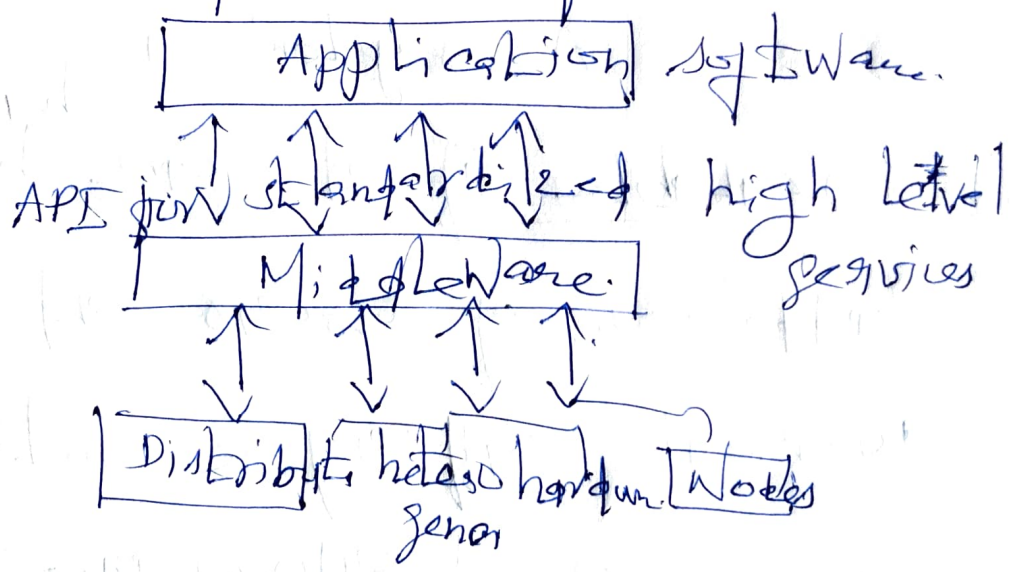 Application software.
API for standardized high level
services
Middleware.
Distribut. hetero hardwar. Nodes
genor